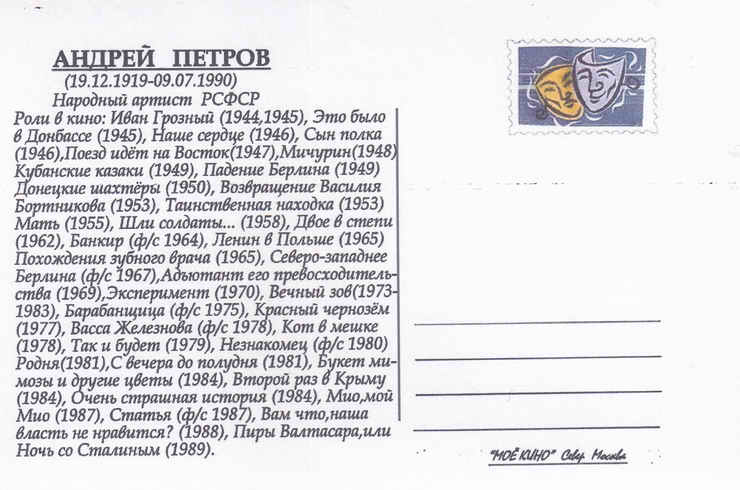 АНДРЕЙ ПЕТРОВ
(19.12.1919-09.07.1990)
Народный артист РСФСР
Роли в кино: Иван Грозный (1944,1945), Это было
в Донбассе (1945), Наше сердце (1946), Сын полка
(1946),Поезд идёт на Восток(1947),Мичурин(1948)
Кубанские казаки (1949), Падение Берлина (1949)
Донецкие шахтёры (1950), Возвращение Василия
Бортникова (1953), Таинственная находка (1953)
Мать (1955), Шли солдаты... (1958), Двое в степи
(1962), Банкир (ф/с 1964), Ленин в Польше (1965)
Похождения зубного врача (1965), Северо-западнее
Берлина (ф/с 1967),Адъютант его превосходитель-
ства (1969),Эксперимент (1970), Вечный зов(1973-
1983), Барабанщица (ф/с 1975), Красный чернозём
(1977), Васса Железнова (ф/с 1978), Кот в мешке
(1978), Так и будет (1979), Незнакомец (ф/с 1980)
Родня(1981),С вечера до полудня (1981), Букет ми-
мозы и другие цветы (1984), Второй раз в Крыму
(1984), Очень страшная история (1984), Мио,мой
Мио (1987), Статья (ф/с 1987), Вам что,наша
власть не нравится? (1988), Пиры Валтасара,или
Ночь со Сталиным (1989).
"МОЁ КИНО" Север Москва